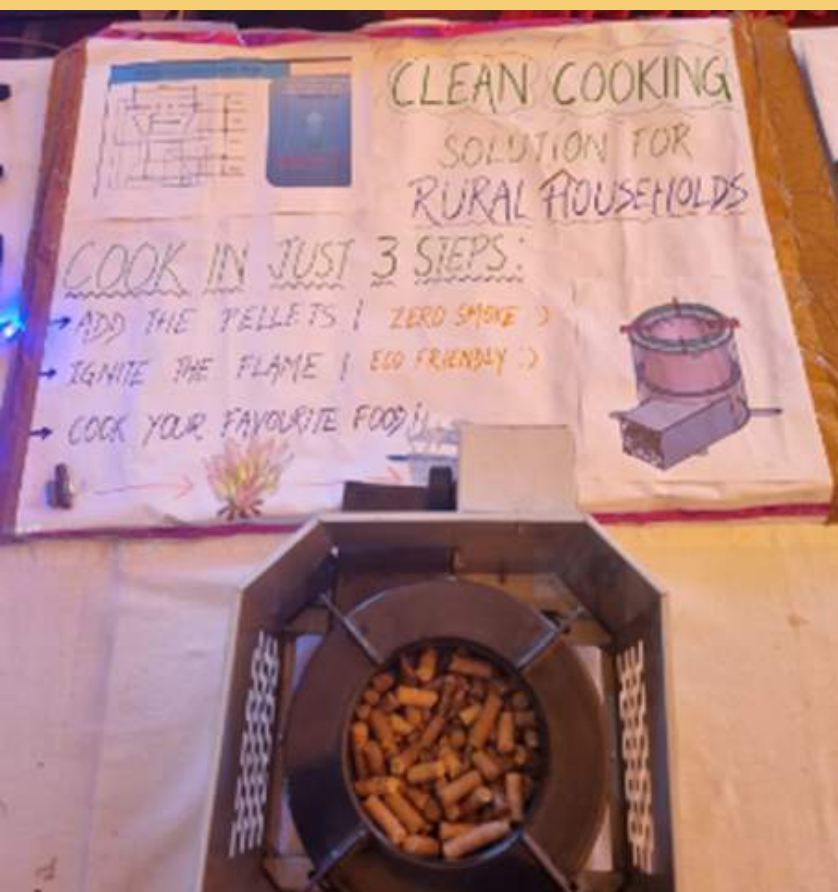 CLEAN COOKING
SOLUTION FOR
RURAL HOUSEHOLDS
COOK IN JUST 3 STEPS:
→ ADD THE PELLETS | ZERO SMOKE :)
→ IGNITE THE FLAME | ECO FRIENDLY :)
→ COOK YOUR FAVOURITE FOOD!!